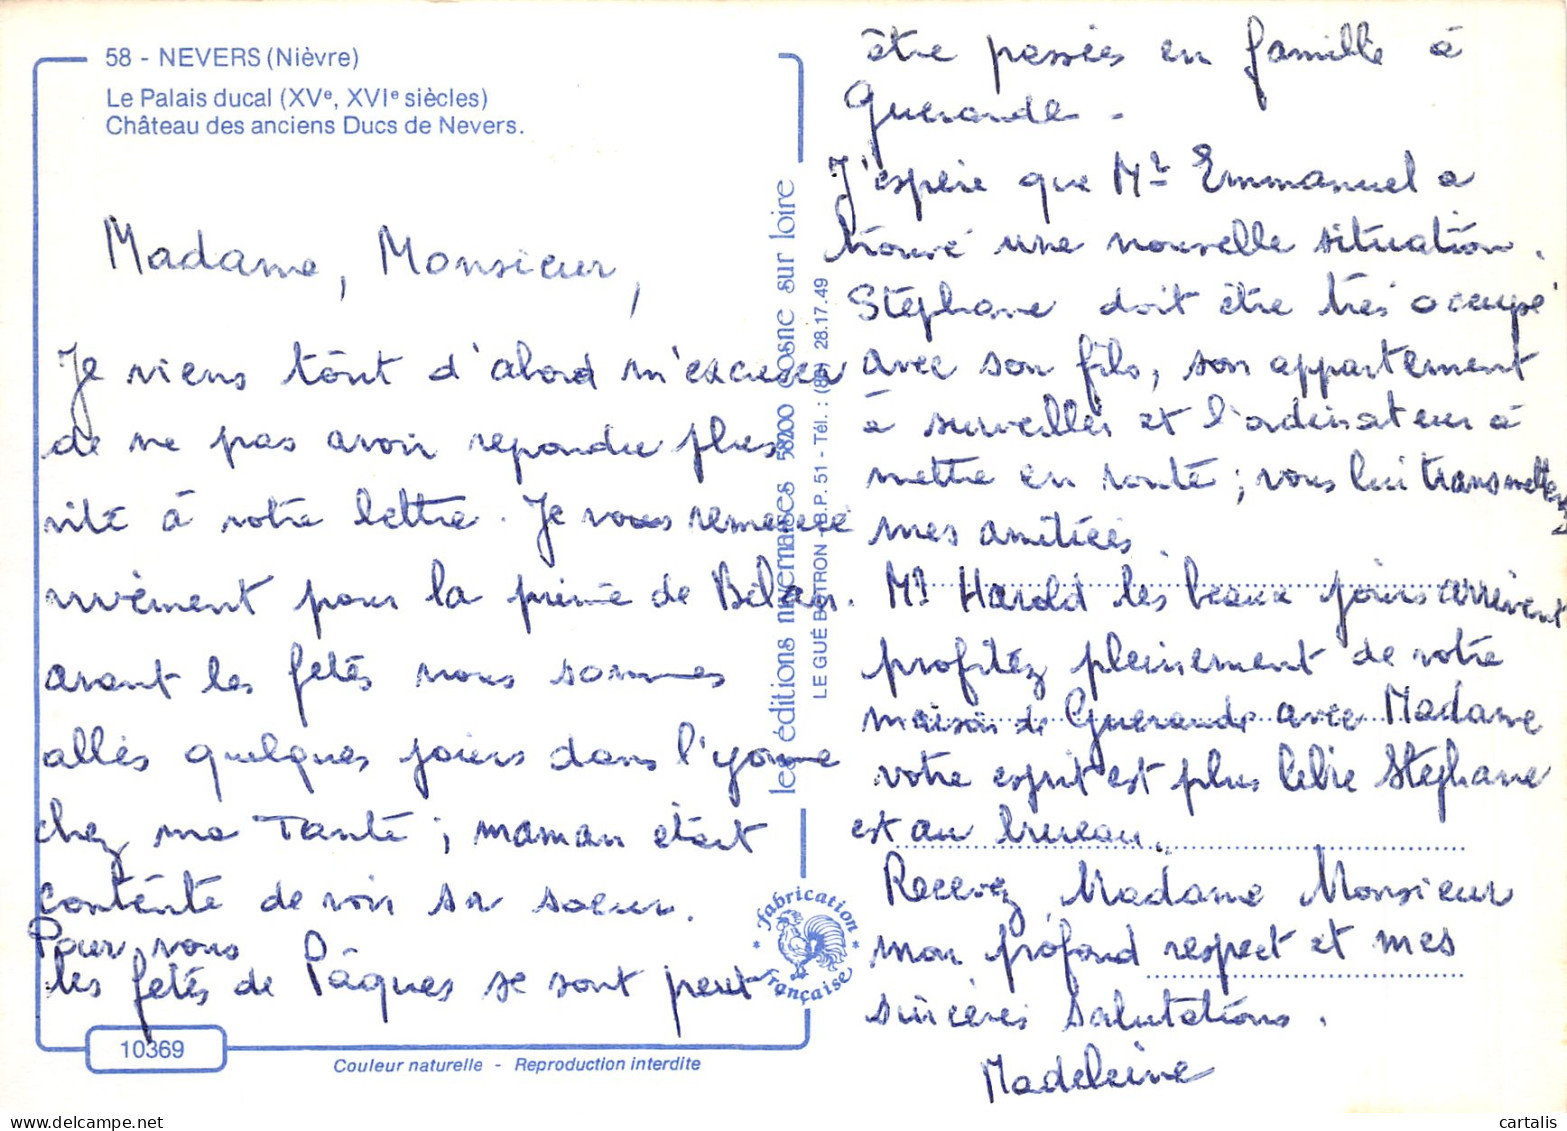 58 - NEVERS (Nièvre)
Le Palais ducal (XVe, XVIe siècles)
Château des anciens Ducs de Nevers.
Madame, Monsieur,
Je viens tout d'abord m'excuser
de ne pas avoir repondu plus
vite à votre lettre. Je vous remercie
vivement pour la prime de Bilan.
avant les fetes nous sommes
allés quelques jours dans l'yonne
chez ma Tante ; maman etait
contente de voir sa soeur.
Pour vous
les fetes de Pâques se sont peut
10369
Couleur naturelle - Reproduction interdite
les éditions nivernaises 58200 cosne sur loire
LE GUÉ BOTRON - B.P. 51 - Tél. : (86) 28.17.49
fabrication française
être passées en famille à
Guerande.
J'espère que Mr Emmanuel a
trouvé une nouvelle situation.
Stephane doit être très occupé
avec son fils, son appartement
à surveiller et l'ordinateur à
mettre en route ; vous lui transmettez
mes amitiées.
Mr Harold les beaux jours arrivent
profitéz pleinement de votre
maison de Guerande avec Madame
votre esprit est plus libre Stephane
est au bureau.
Recevez Madame Monsieur
mon profond respect et mes
sincères salutations.
Madeleine
cartalis